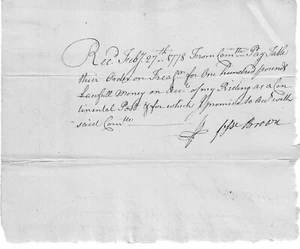 Rec'd Feb'y 27th 1778 From Com'tee Pay Table
their Order on Treas'r for One hundred pounds
Lawfull Money on Acc't of my Riding as a Con
tinental Post & for which I promise to Acc't with
said Com'tee
Jesse Brown